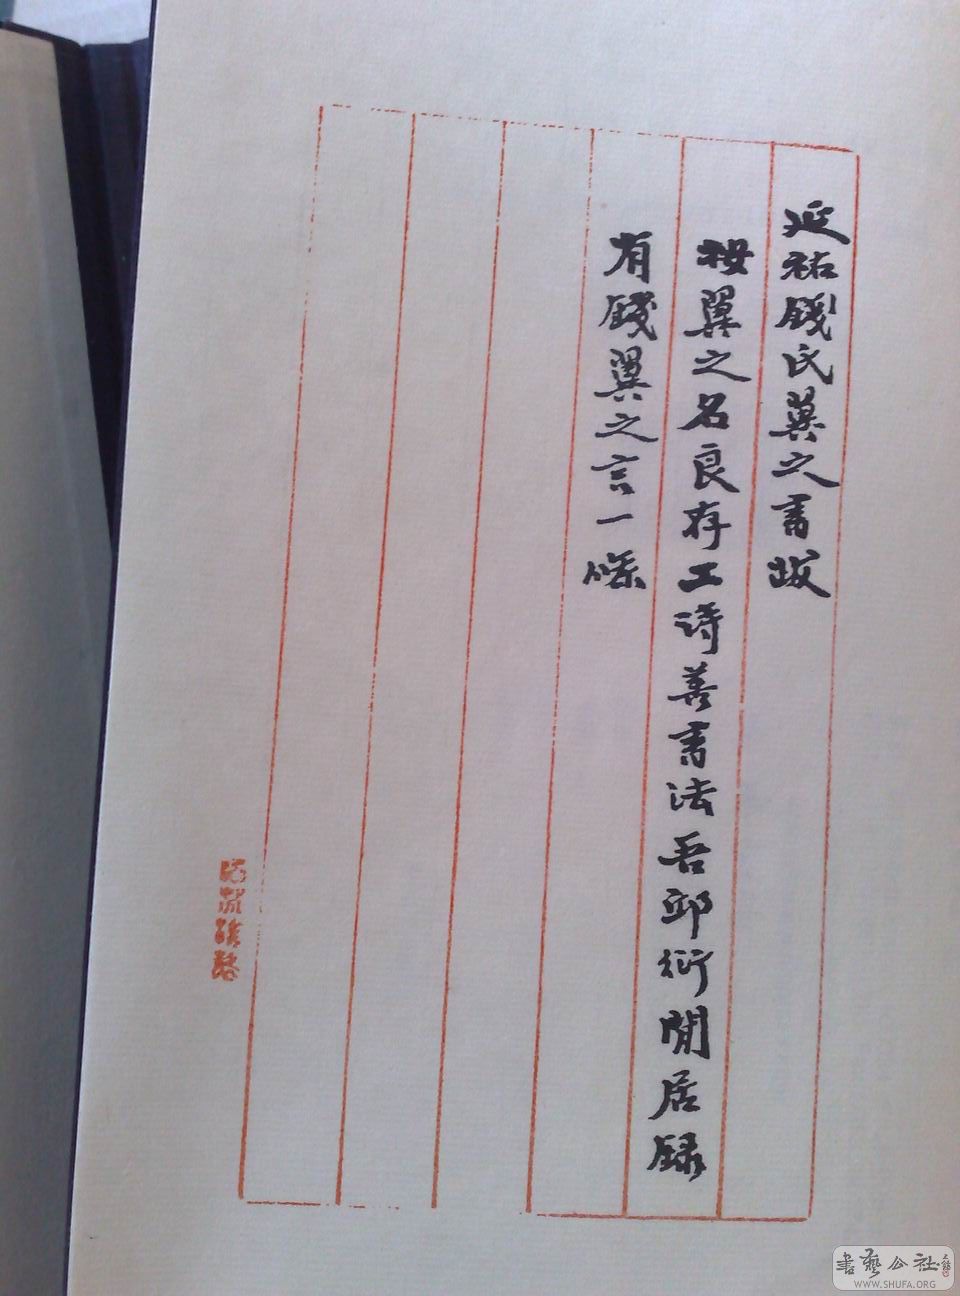 延祐錢氏翼之書跋
按翼之名良存工詩善書法吾邱衍閒居録
有錢翼之言一條
書藝公社
WWW.SHUFA.ORG